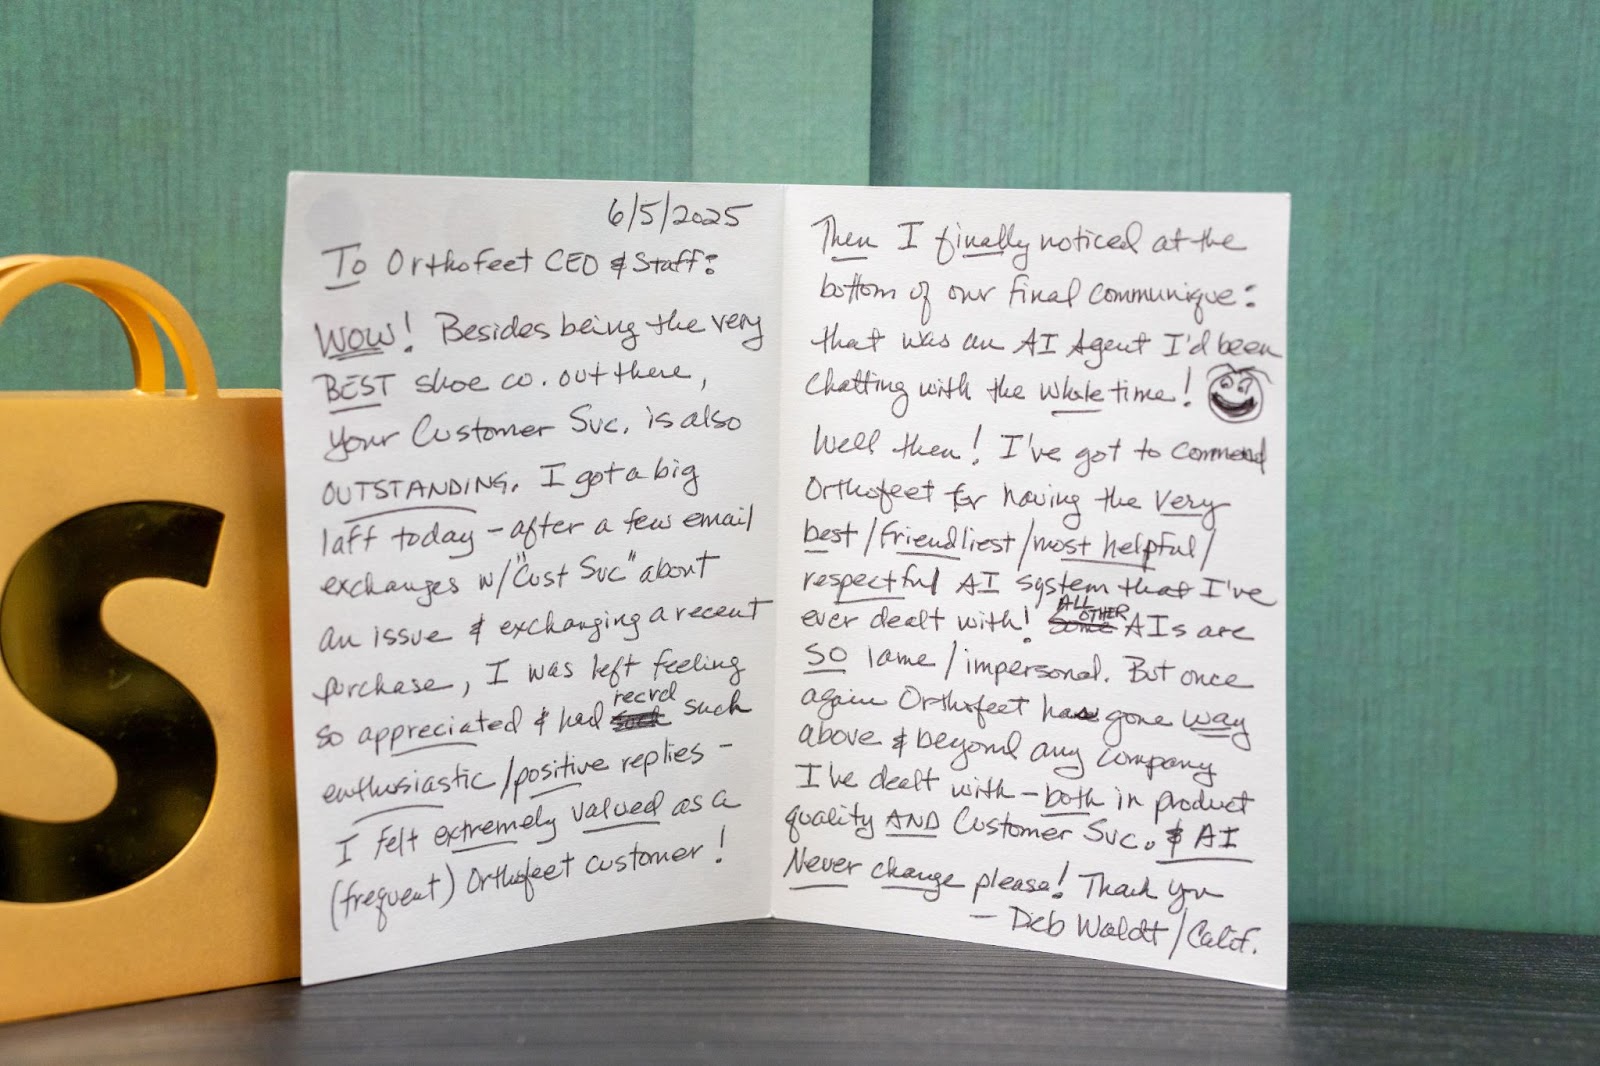 S
6/5/2025
To Orthofeet CEO & Staff:
WOW! Besides being the very
BEST shoe co. out there,
your Customer Svc. is also
OUTSTANDING. I got a big
laff today - after a few email
exchanges w/"Cust Svc" about
an issue & exchanging a recent
purchase, I was left feeling
so appreciated & had recvd such
enthusiastic/positive replies -
I felt extremely valued as a
(frequent) Orthofeet customer!
Then I finally noticed at the
bottom of our final communique:
that was an AI Agent I'd been
chatting with the whole time!
Well then! I've got to commend
Orthofeet for having the very
best/friendliest/most helpful/
respectful AI system that I've
ever dealt with! ALL OTHER AIs are
SO lame/impersonal. But once
again Orthofeet has gone way
above & beyond any company
I've dealt with - both in product
quality AND Customer Svc. & AI
Never change please! Thank you
- Dieb Waldt/Calif.